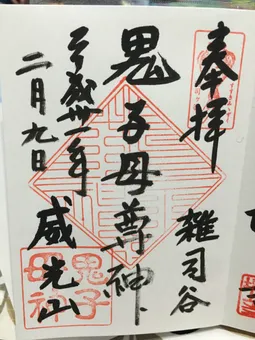 奉拝
雑司谷
鬼子母尊神
威光山
平成卅一年
二月九日
鬼子
母神